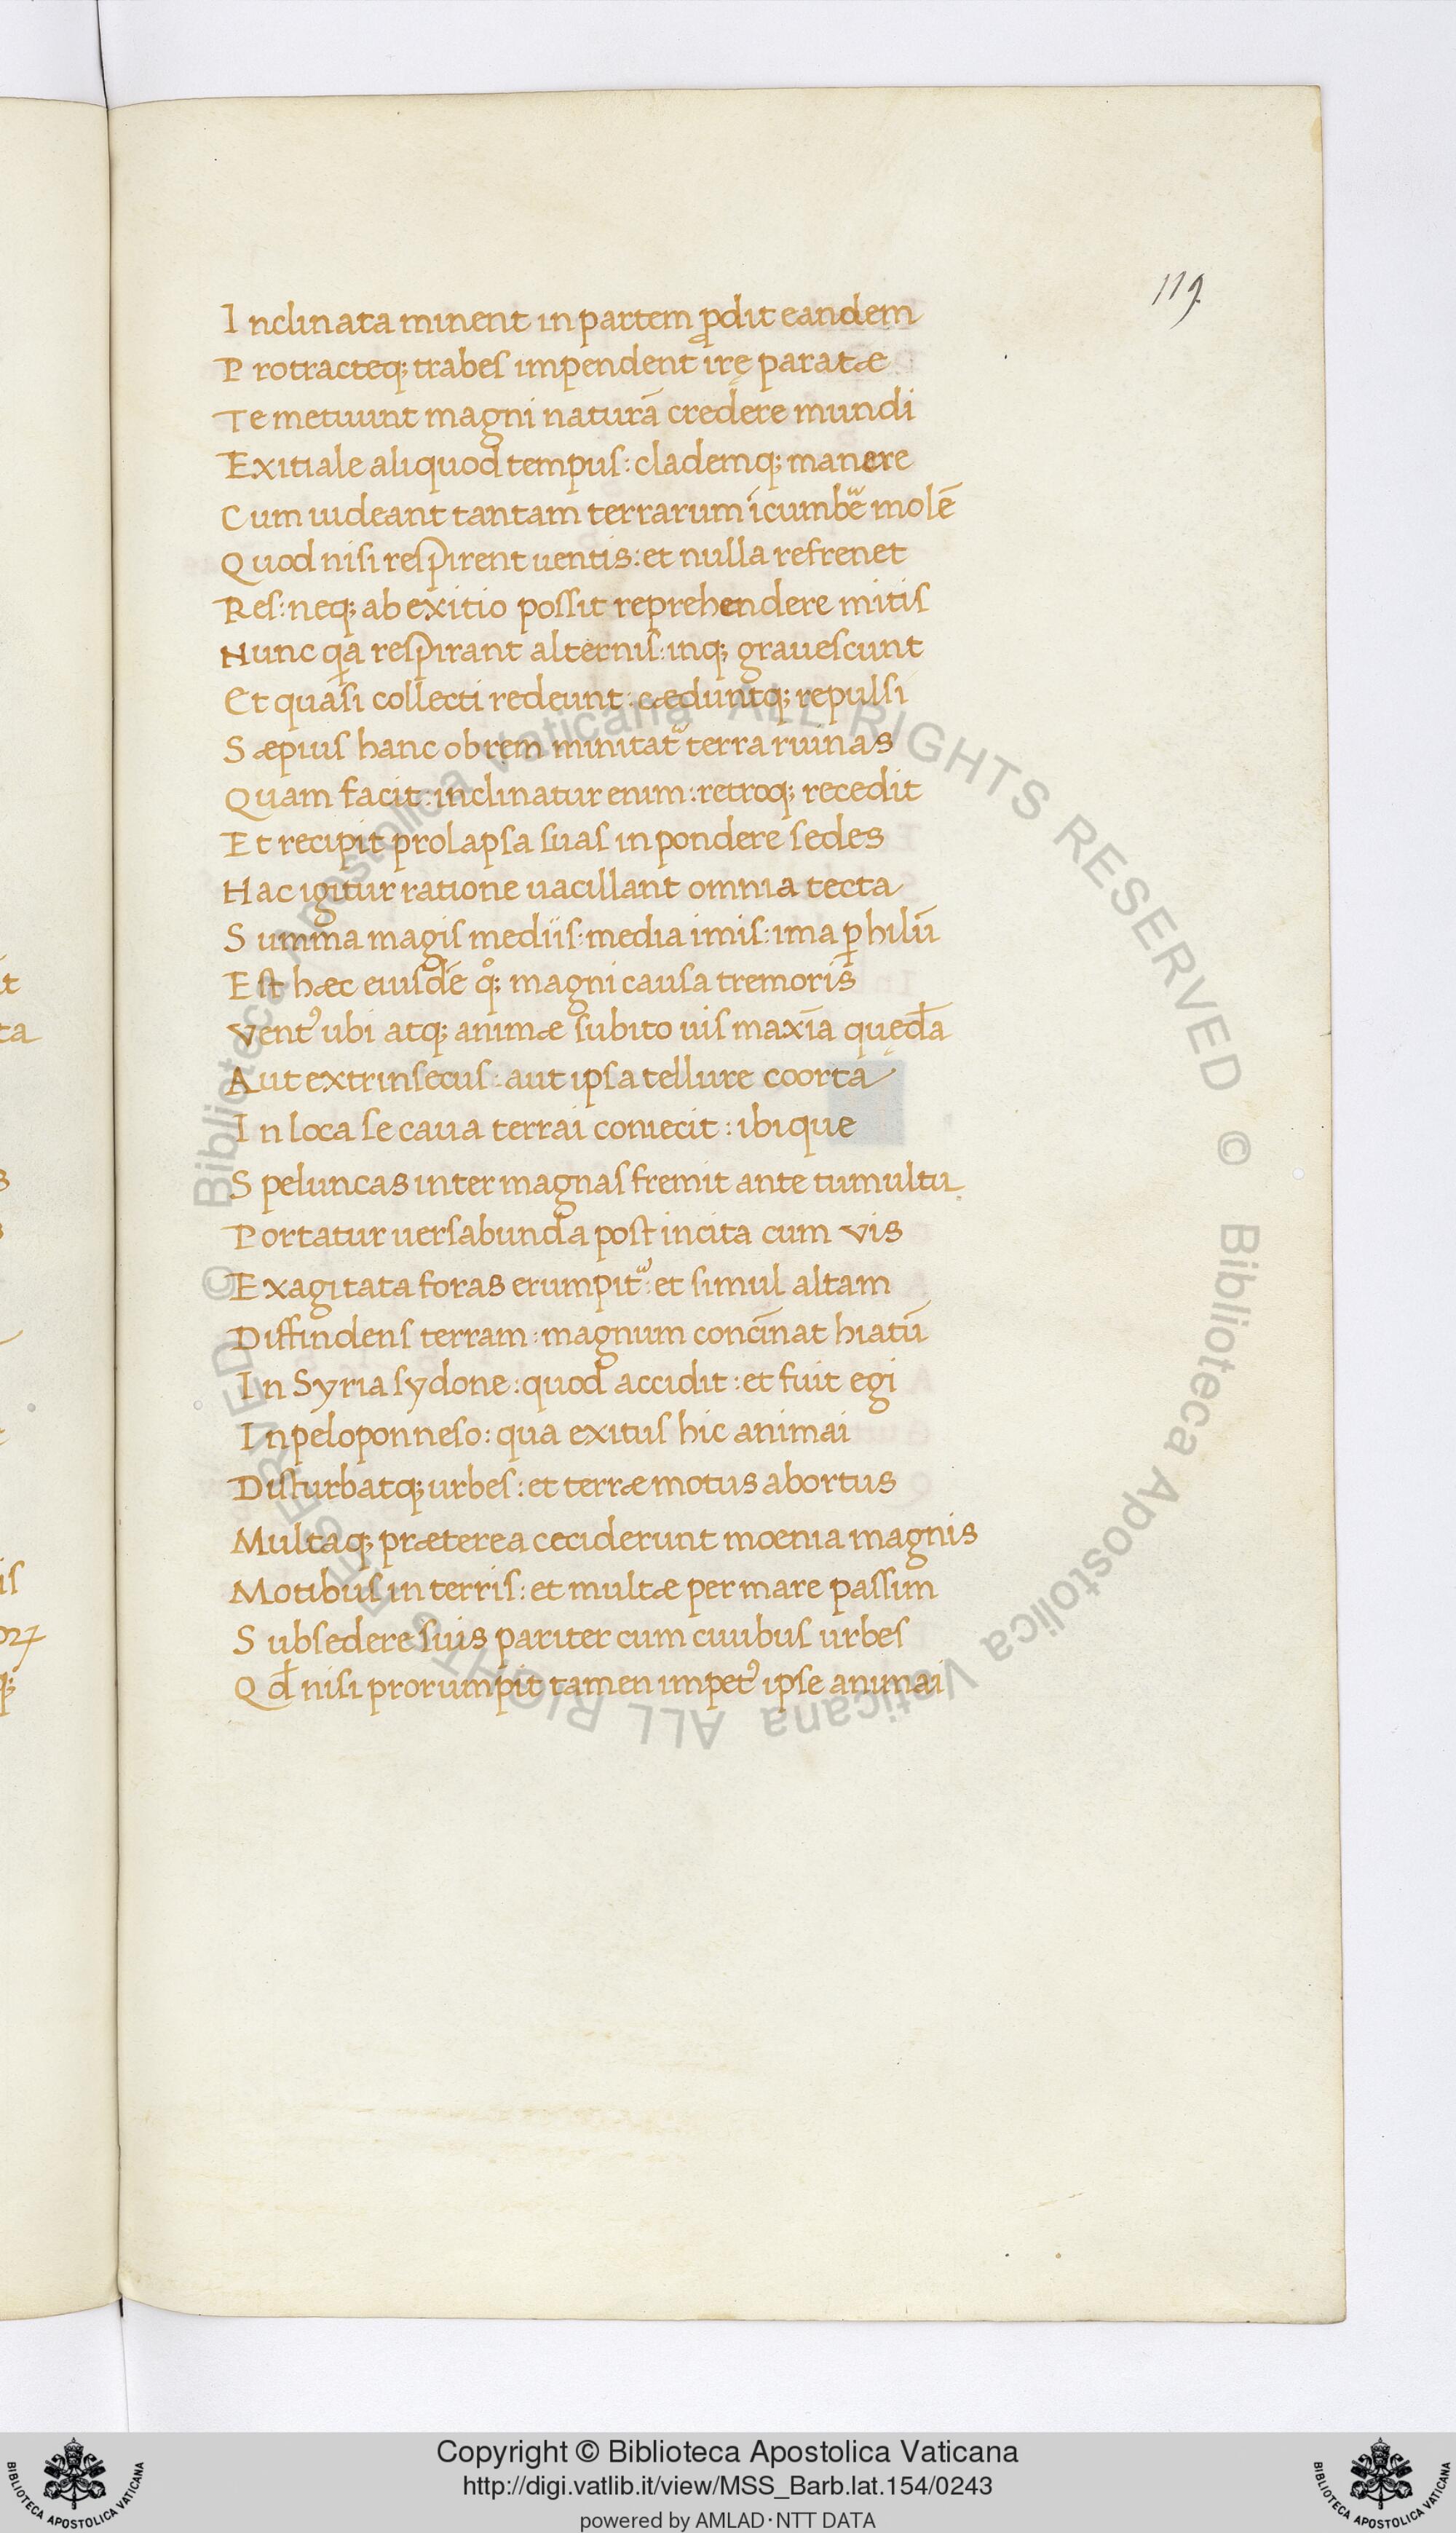 119
Inclinata minent in partem ꝓdit eandem
Protracteq; trabes impendent irę paratæ
Te metuunt magni naturā credere mundi
Exitiale aliquod tempus: clademq; manere
Cum uideant tantam terrarum īcumbe᷑ molē
Quod nisi respirent uentis: et nulla refrenet
Res: neq; ab exitio possit reprehendere mitis
Nunc qa respirant alternis: inq; grauescunt
Et quasi collecti redeunt: cæduntq; repulsi
Sæpius hanc obrem minitat᷑ terra ruinas
Quam facit: inclinatur enim: retroq; recedit
Et recipit prolapsa suas in pondere sedes
Hac igitur ratione uacillant omnia tecta
Summa magis mediis: media imis: ima ꝑhilū
Est hæc eiusdē qͦ; magni causa tremoris
Ventꝰ ubi atq; animæ subito uis maxīa quędā
Aut extrinsecus: aut ipsa tellure coorta
In loca se caua terrai coniecit: ibique
Speluncas inter magnas fremit ante tumultu
Portatur uersabunda post incita cum vis
Exagitata foras erumpit᷑: et simul altam
Diffindens terram: magnum concīnat hiatū
In Syria sydone: quod accidit: et fuit egi
In peloponneso: qua exitus hic animai
Disturbatq; urbes: et terræ motus abortus
Multaq; præterea ceciderunt moenia magnis
Motibus in terris: et multæ per mare passim
Subsedere suis pariter cum ciuibus urbes
Qđ nisi prorumpit tamen impetꝰ ipse animai
© Biblioteca Apostolica Vaticana ALL RIGHTS RESERVED © Biblioteca Apostolica Vaticana ALL RIGHTS RESERVED
Copyright © Biblioteca Apostolica Vaticana
http://digi.vatlib.it/view/MSS_Barb.lat.154/0243
powered by AMLAD·NTT DATA
BIBLIOTECA APOSTOLICA VATICANA
BIBLIOTECA APOSTOLICA VATICANA